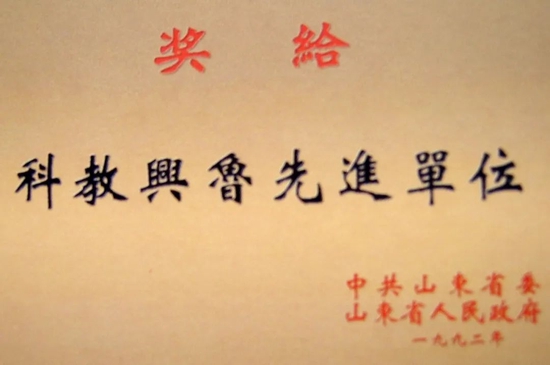 奖給
科教興魯先進單位
中共山東省委
山東省人民政府
一九九二年